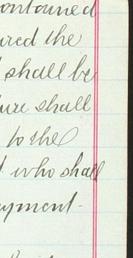 ontained
ired the
shall be
ure shall
to the
who shall
ayment.